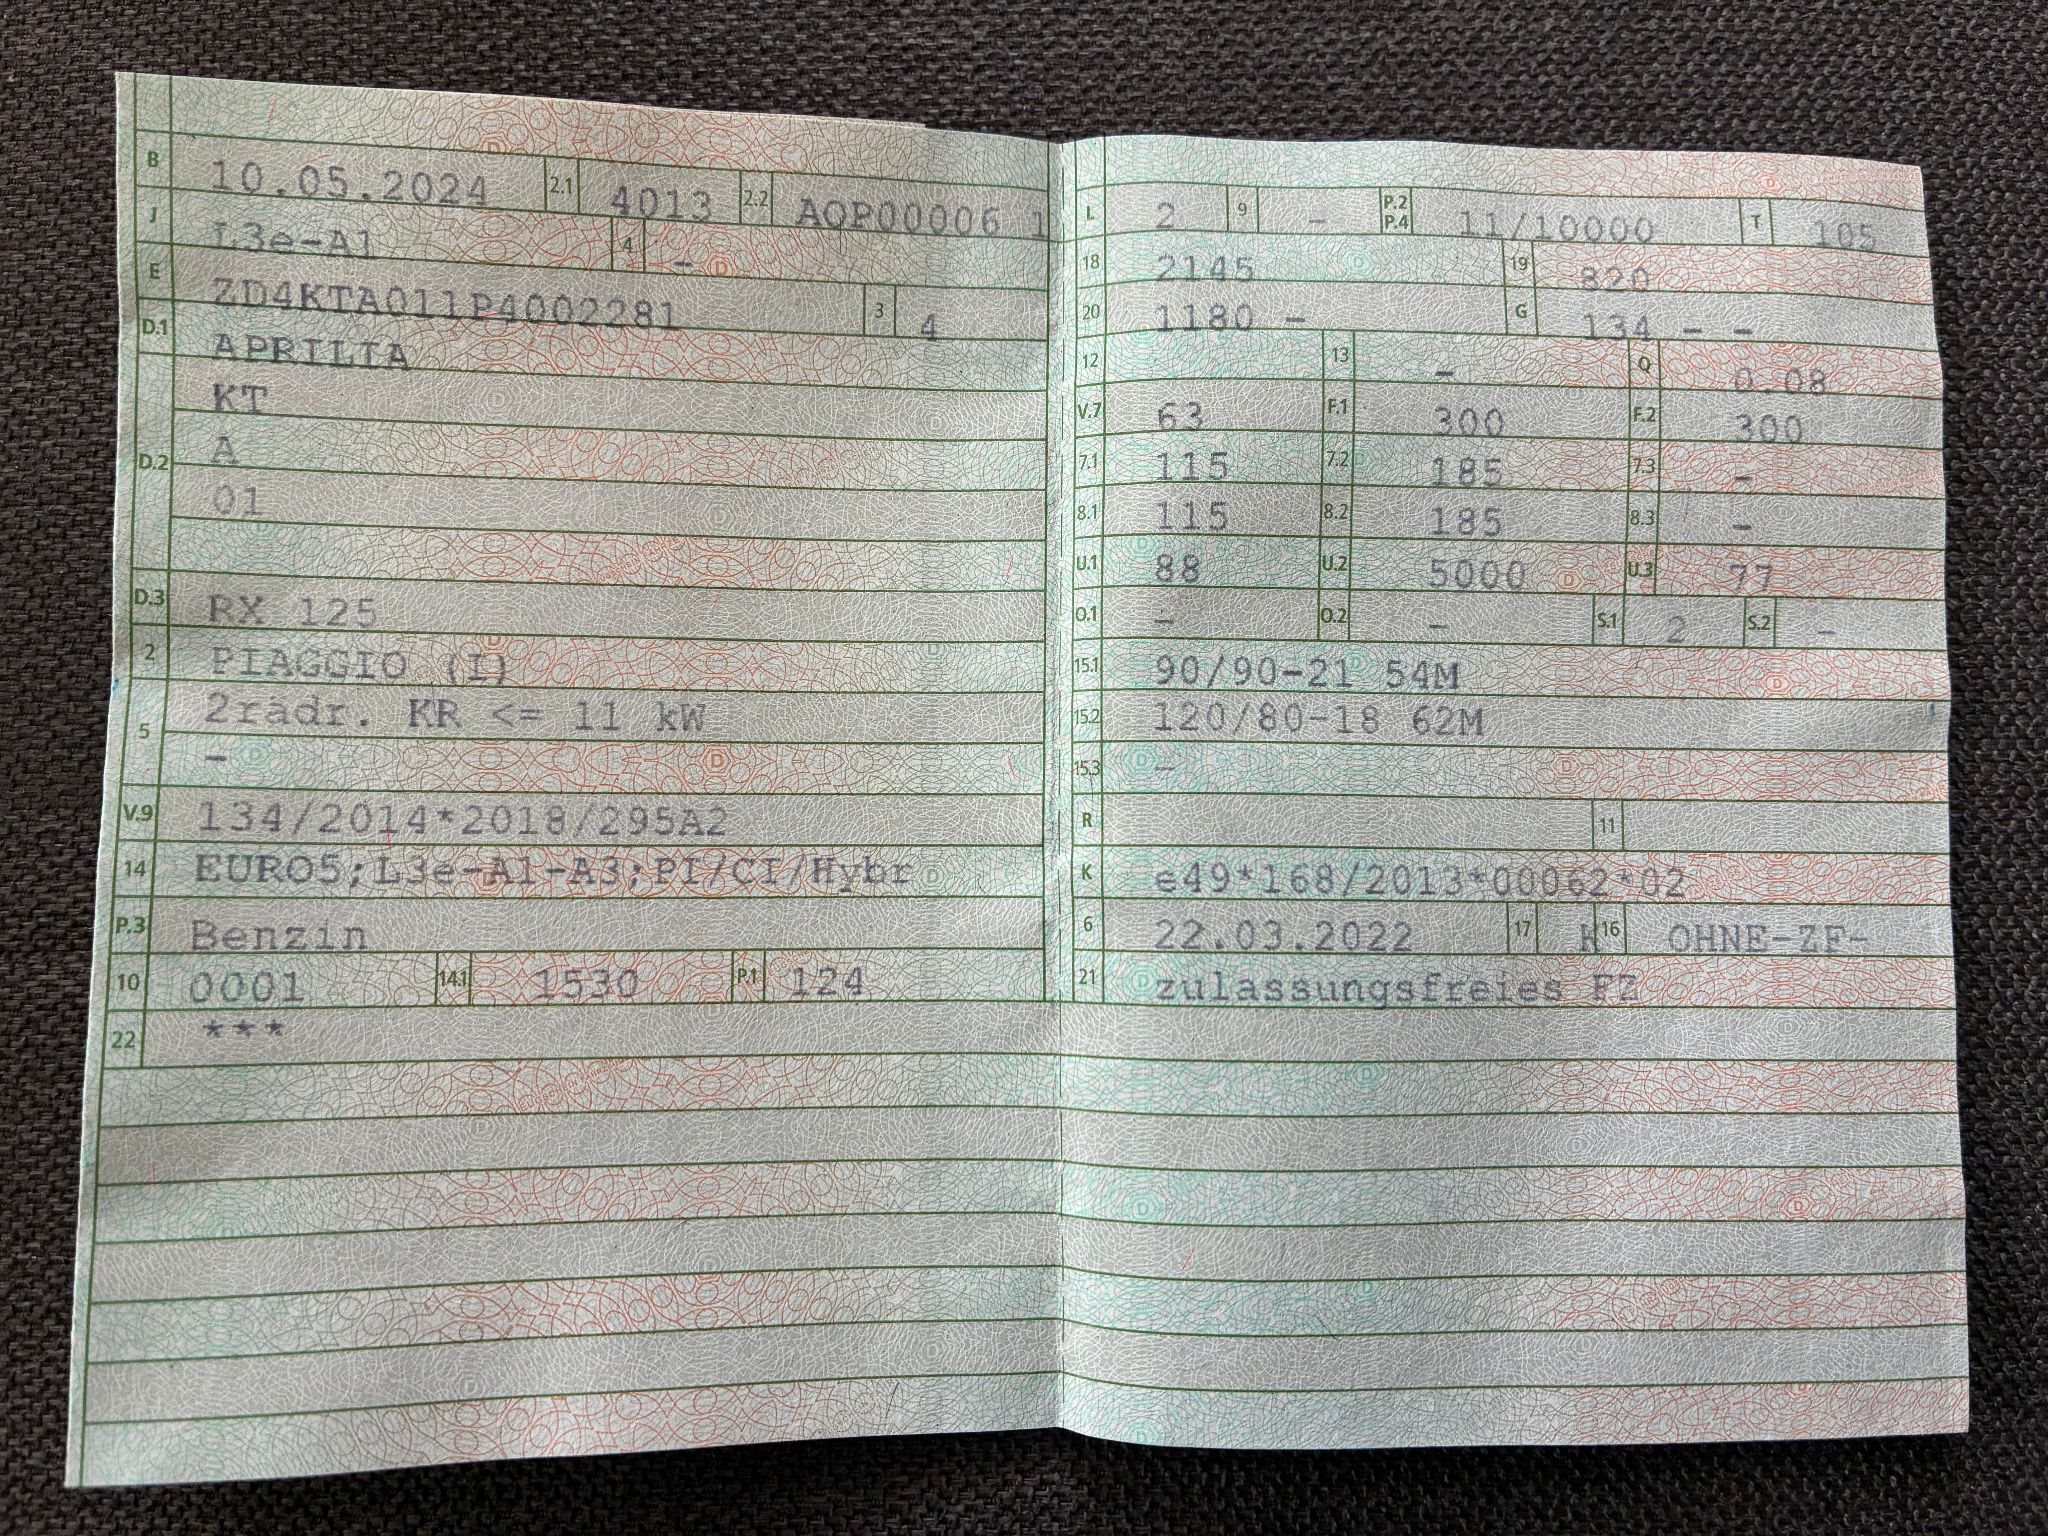 B 10.05.2024 2.1 4013 2.2 AOP00006 1
J L3e-A1 4 -
E ZD4KTA011P4002281 3 4
D.1 APRILIA
D.2 KT
A
01
D.3 RX 125
2 PIAGGIO (I)
5 2rädr. KR <= 11 kW
-
V.9 134/2014*2018/295A2
14 EURO5;L3e-A1-A3;PI/CI/Hybr
P.3 Benzin
10 0001 14.1 1530 P.1 124
22 ***
L 2 9 - P.2 P.4 11/10000 T 105
18 2145 19 820
20 1180 - G 134 - -
12 13 - Q 0.08
V.7 63 F.1 300 F.2 300
7.1 115 7.2 185 7.3 -
8.1 115 8.2 185 8.3 -
U.1 88 U.2 5000 U.3 77
O.1 - O.2 - S.1 2 S.2 -
15.1 90/90-21 54M
15.2 120/80-18 62M
15.3 -
R 11
K e49*168/2013*00062*02
6 22.03.2022 17 H 16 OHNE-ZF-
21 zulassungsfreies FZ